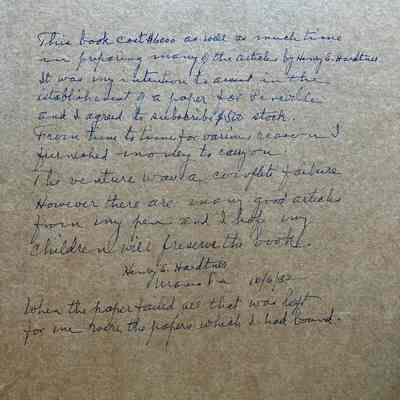 This book cost $6000 as well as much time
in preparing many of the articles by Henry E. Hardtner
It was my intention to assist in the
establishment of a paper for Pineville
and I agreed to subscribe $500 stock.
From time to time for various reason I
furnished money to carry on
The venture was a complete failure
However there are many good articles
from my pen and I hope my
children will preserve the book.
Henry E. Hardtner
Urania La 10/6/32
When the paper failed all that was left
for me were the papers which I had bound.